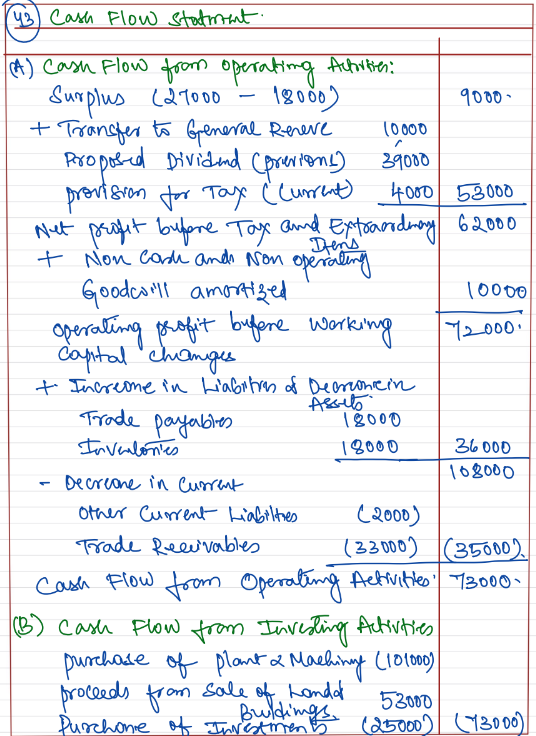 43 Cash Flow Statment.
(A) Cash Flow from Operating Activities:
Surplus (27000 - 18000) 9000.
+ Transfer to General Reserve 10000
Proposed Dividend (previous) 39000
provision for Tax (Current) 4000 53000
Net profit before Tax and Extraordinary Items 62000
+ Non Cash and Non operating
Goodwill amortized 10000
operating profit before working 72000.
Capital changes
+ Increase in Liabilities & Decrease in Assets
Trade payables 18000
Inventories 18000 36000
108000
- Decrease in Current
Other Current Liabilities (2000)
Trade Receivables (33000) (35000).
Cash Flow from Operating Activities. 73000.
(B) Cash Flow from Investing Activities
purchase of plant & Machinery (101000)
proceeds from sale of Land & Buildings 53000
Purchase of Investments (25000) (73000)